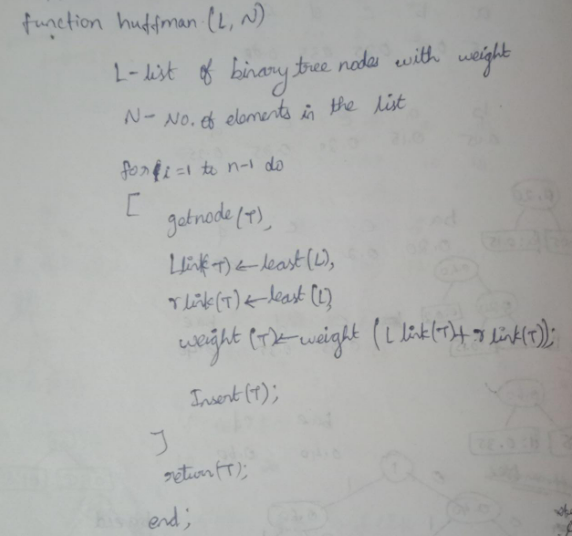 function huffman (L, N)
L - list of binary tree nodes with weight
N - No. of elements in the list
for i=1 to n-1 do
[
getnode (T),
Llink(T) ← least (L),
rlink(T) ← least (L)
weight (T) ← weight (L link(T)+ r link(T));
Insert (T);
]
return(T);
end;